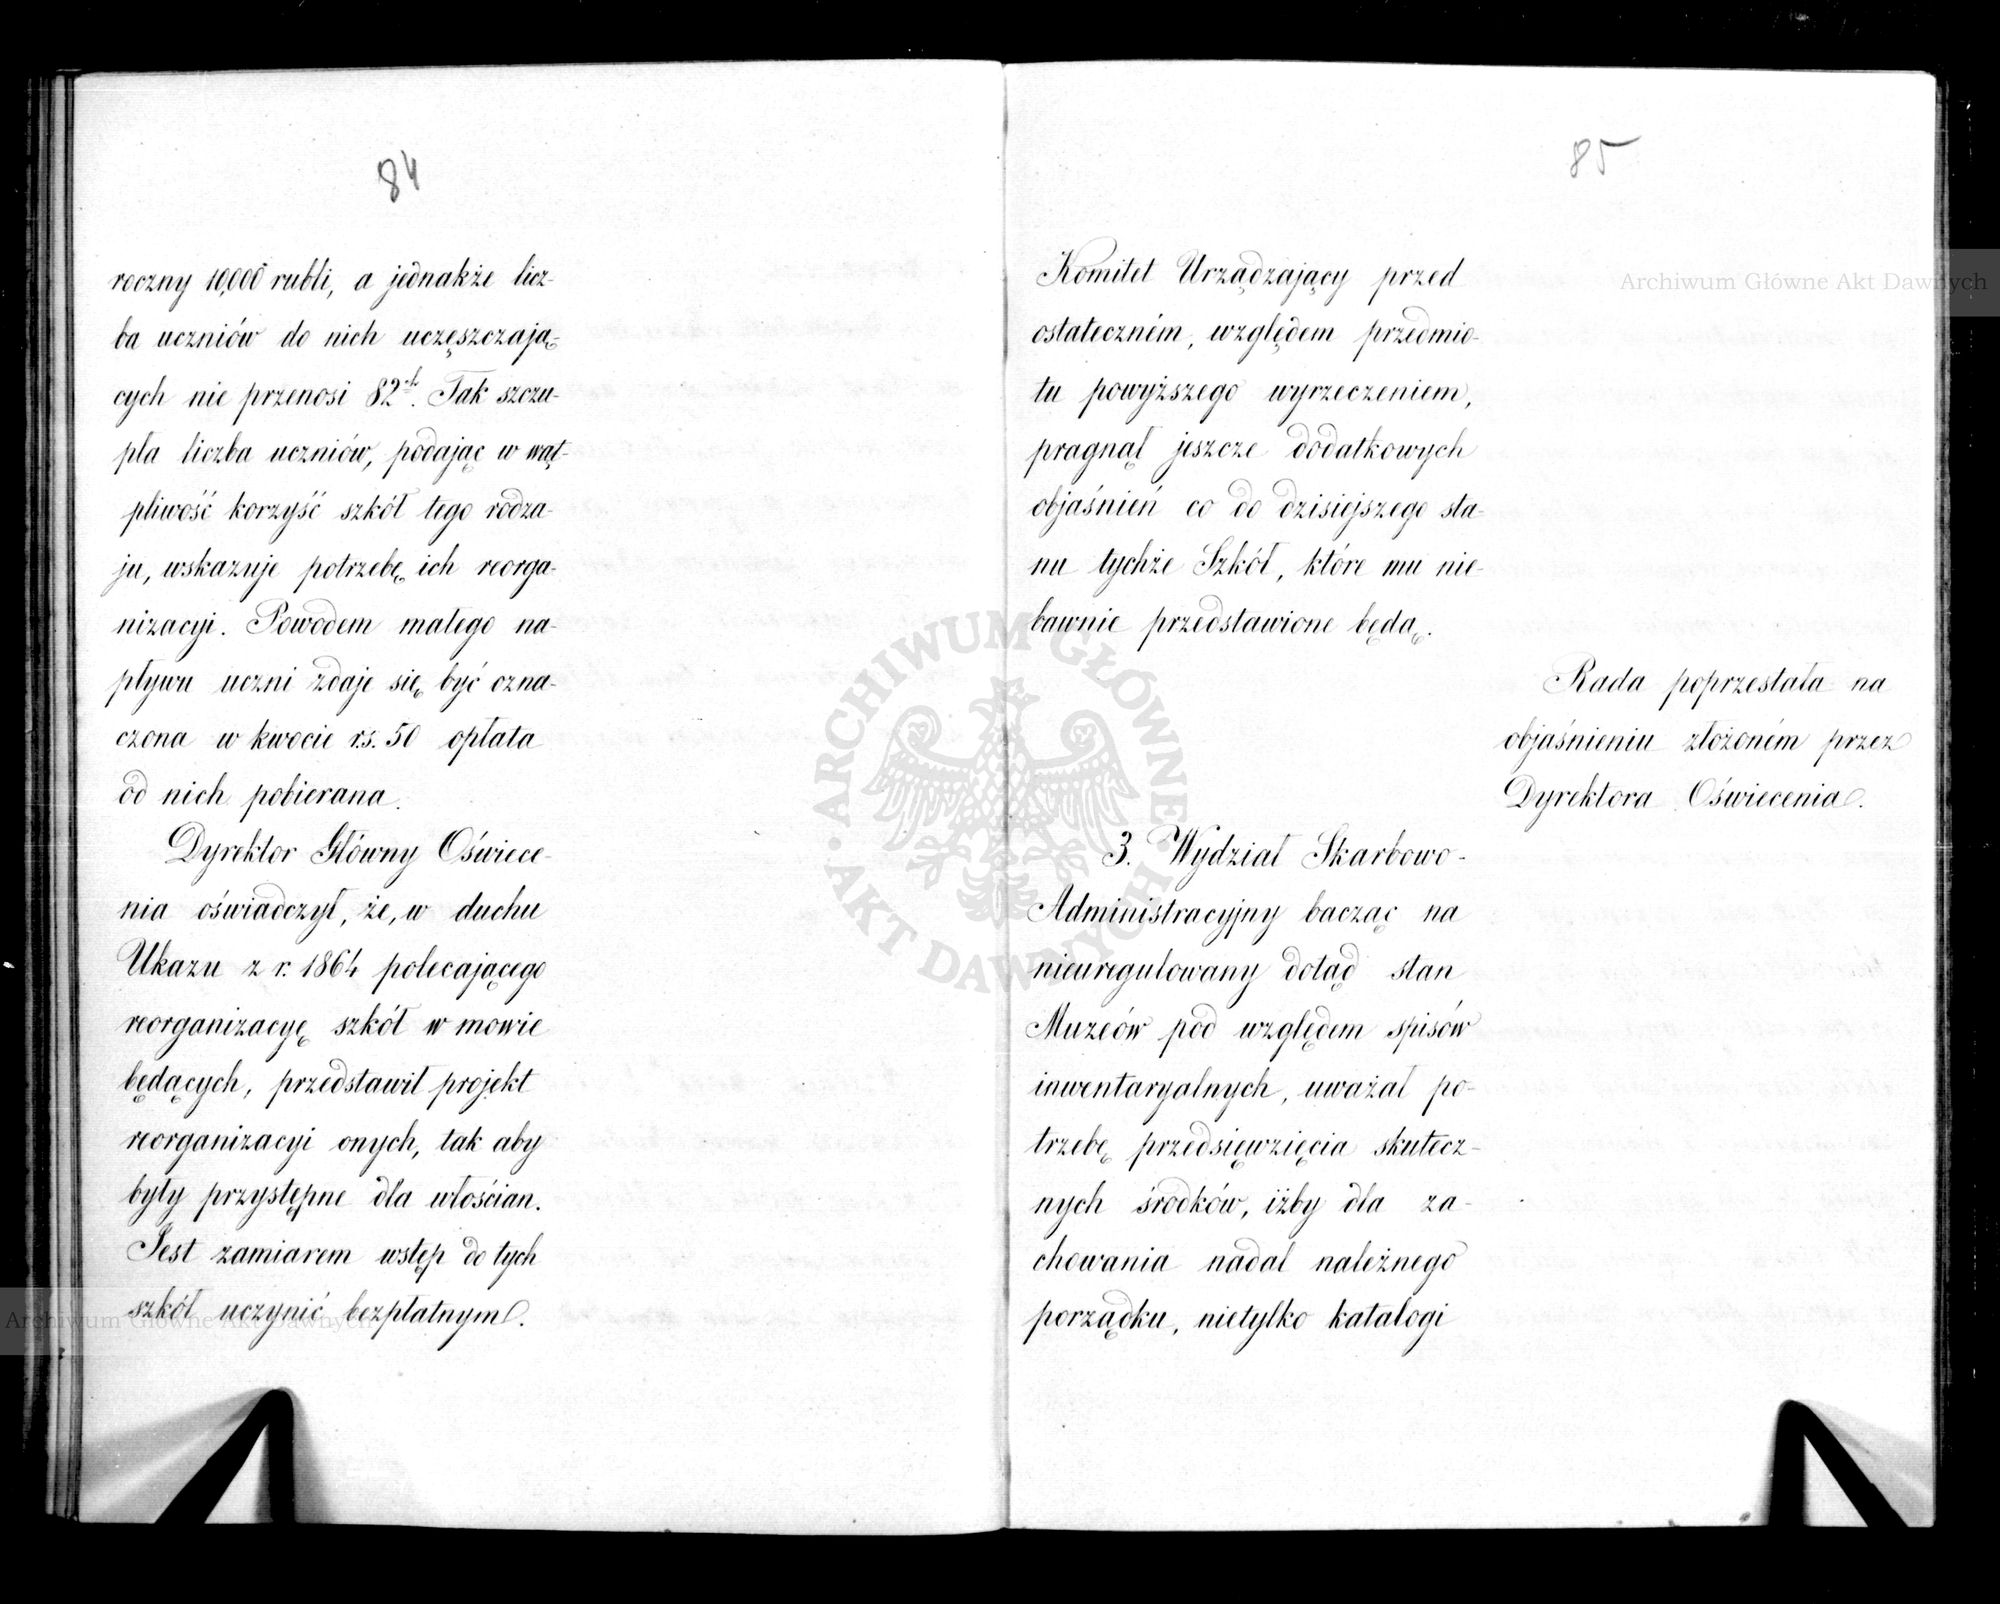 84
roczny 10,000 rubli, a jednakże licz-
ba uczniów do nich uczęszczają-
cych nie przenosi 82ch. Tak szczu-
pła liczba uczniów, podając w wąt-
pliwość korzyść szkół tego rodza-
ju, wskazuje potrzebę ich reorga-
nizacyi. Powodem małego na-
pływu uczni zdaje się być ozna-
czona w kwocie rs. 50 opłata
od nich pobierana.
Dyrektor Główny Oświece-
nia oświadczył, że, w duchu
Ukazu z r. 1864 polecającego
reorganizacyę szkół w mowie
będących, przedstawił projekt
reorganizacyi onych, tak aby
były przystępne dla włościan.
Jest zamiarem wstęp do tych
szkół uczynić bezpłatnym.
85
Komitet Urządzający przed
ostateczném, względem przedmio-
tu powyższego wyrzeczeniem,
pragnął jeszcze dodatkowych
objaśnień co do dzisiejszego sta-
nu tychże Szkół, które mu nie-
bawnie przedstawione będą.
Rada poprzestała na
objaśnieniu złożoném przez
Dyrektora Oświecenia.
3. Wydział Skarbowo-
Administracyjny bacząc na
nieuregulowany dotąd stan
Muzeów pod względem spisów
inwentaryalnych, uważał po-
trzebę przedsięwzięcia skutecz-
nych środków, iżby dla za-
chowania nadal należnego
porządku, nietylko katalogi
Archiwum Główne Akt Dawnych
Archiwum Główne Akt Dawnych
ARCHIWUM GŁÓWNE AKT DAWNYCH